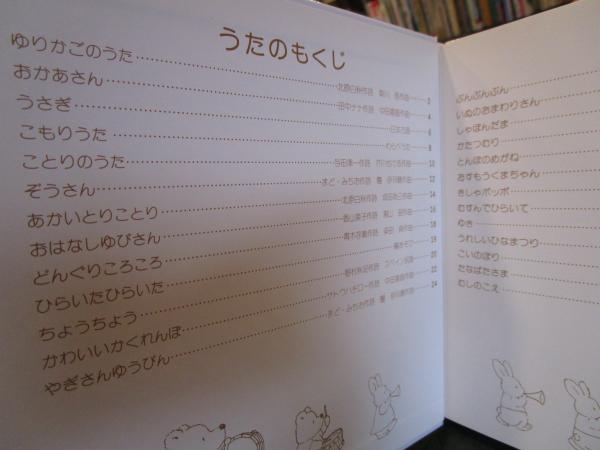 うたのもくじ
ゆりかごのうた 北原白秋作詞 草川 信作曲 2
おかあさん 田中ナナ作詞 中田喜直作曲 4
うさぎ 日本古謡 6
こもりうた わらべうた 8
ことりのうた 与田凖一作詞 芥川也寸志作曲 10
ぞうさん まど・みちお作詞 團 伊玖磨作曲 12
あかいとりことり 北原白秋作詞 成田為三作曲 14
おはなしゆびさん 香山美子作詞 湯山 昭作曲 16
どんぐりころころ 青木存義作詞 梁田 貞作曲 18
ひらいたひらいた 19
ちょうちょう 野村秋足作詞 スペイン民謡 20
かわいいかくれんぼ サトウハチロー作詞 中田喜直作曲 22
やぎさんゆうびん まど・みちお作詞 團 伊玖磨作曲 24
ぶんぶんぶん
いぬのおまわりさん
しゃぼんだま
かたつむり
とんぼのめがね
おすもうくまちゃん
きしゃポッポ
むすんでひらいて
ゆき
うれしいひなまつり
こいのぼり
たなばたさま
むしのこえ